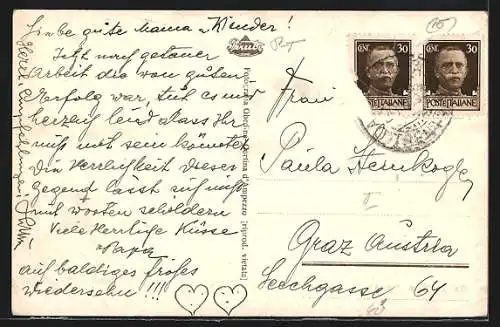 Liebe gute Mama u Kinder!
Jetzt nach getaner
Arbeit die von guten
Erfolg war, tut es mir
herzlich leid dass Ihr
nicht mit sein könntet
die Herrlichkeit dieser
Gegend lässt sich nicht
mit worten schildern
Viele Herzliche Küsse
Papa
auf baldiges frohes
Wiedersehn!!!
Fotografia Ghedina, Cortina d'Ampezzo [riprod. vietata]
30
POSTE ITALIANE
30
POSTE ITALIANE
Frau
Paula
Graz Austria
64